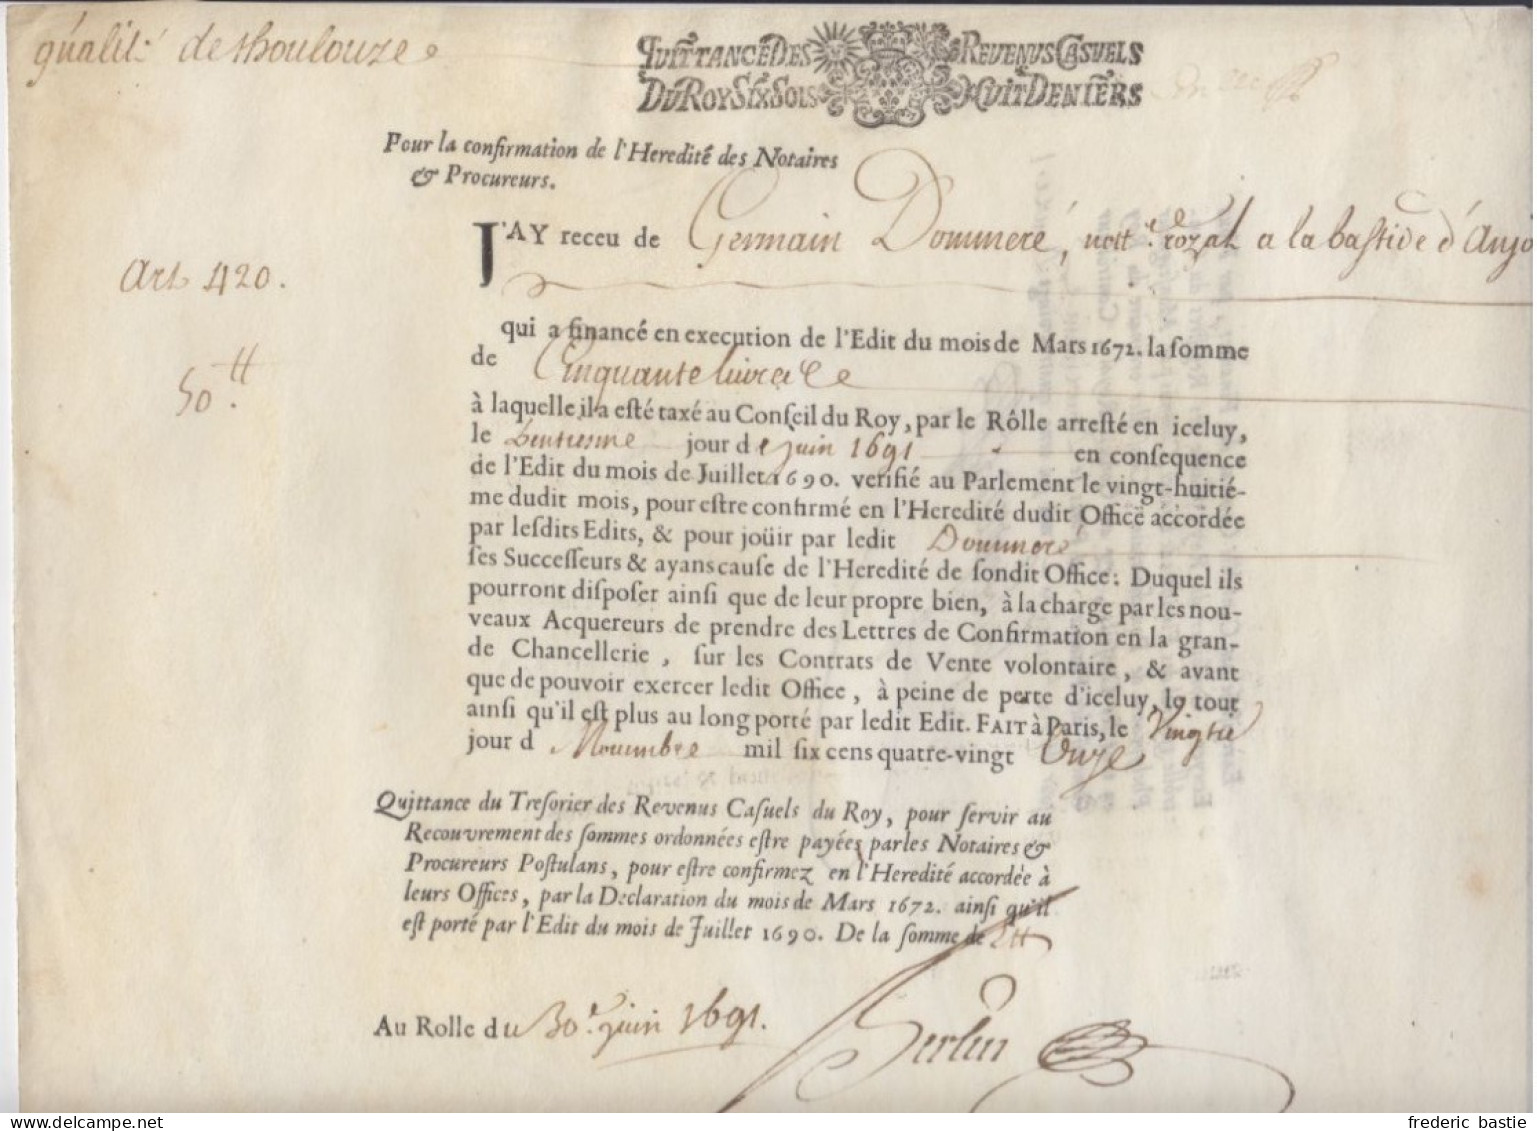 de Thoulouze
QUITTANCE DES REVENUS CASUELS
DU ROY SIX SOLS HUIT DENIERS
Pour la confirmation de l'Heredité des Notaires
& Procureurs.
J'AY receu de Germain Doumeré, nott.re royal a la bastide d'Anjo
Art 420.
qui a financé en execution de l'Edit du mois de Mars 1672. la somme
de Cinquante livres
50.tt
à laquelle il a esté taxé au Conseil du Roy, par le Rôlle arresté en iceluy,
le jour de juin 1691 en consequence
de l'Edit du mois de Juillet 1690. verifié au Parlement le vingt-huitié-
me dudit mois, pour estre confirmé en l'Heredité dudit Office accordée
par lesdits Edits, & pour joüir par ledit Doumeré
ses Successeurs & ayans cause de l'Heredité de sondit Office: Duquel ils
pourront disposer ainsi que de leur propre bien, à la charge par les nou-
veaux Acquereurs de prendre des Lettres de Confirmation en la gran-
de Chancellerie, sur les Contrats de Vente volontaire, & avant
que de pouvoir exercer ledit Office, à peine de perte d'iceluy, le tout
ainsi qu'il est plus au long porté par ledit Edit. FAIT à Paris, le Vingtie
jour d Nouembre mil six cens quatre-vingt Onze
Quittance du Tresorier des Revenus Casuels du Roy, pour servir au
Recouvrement des sommes ordonnées estre payées par les Notaires &
Procureurs Postulans, pour estre confirmez en l'Heredité accordée à
leurs Offices, par la Declaration du mois de Mars 1672. ainsi qu'il
est porté par l'Edit du mois de Juillet 1690. De la somme de Ltt
Au Rolle du 30.e juin 1691.
frederic bastie